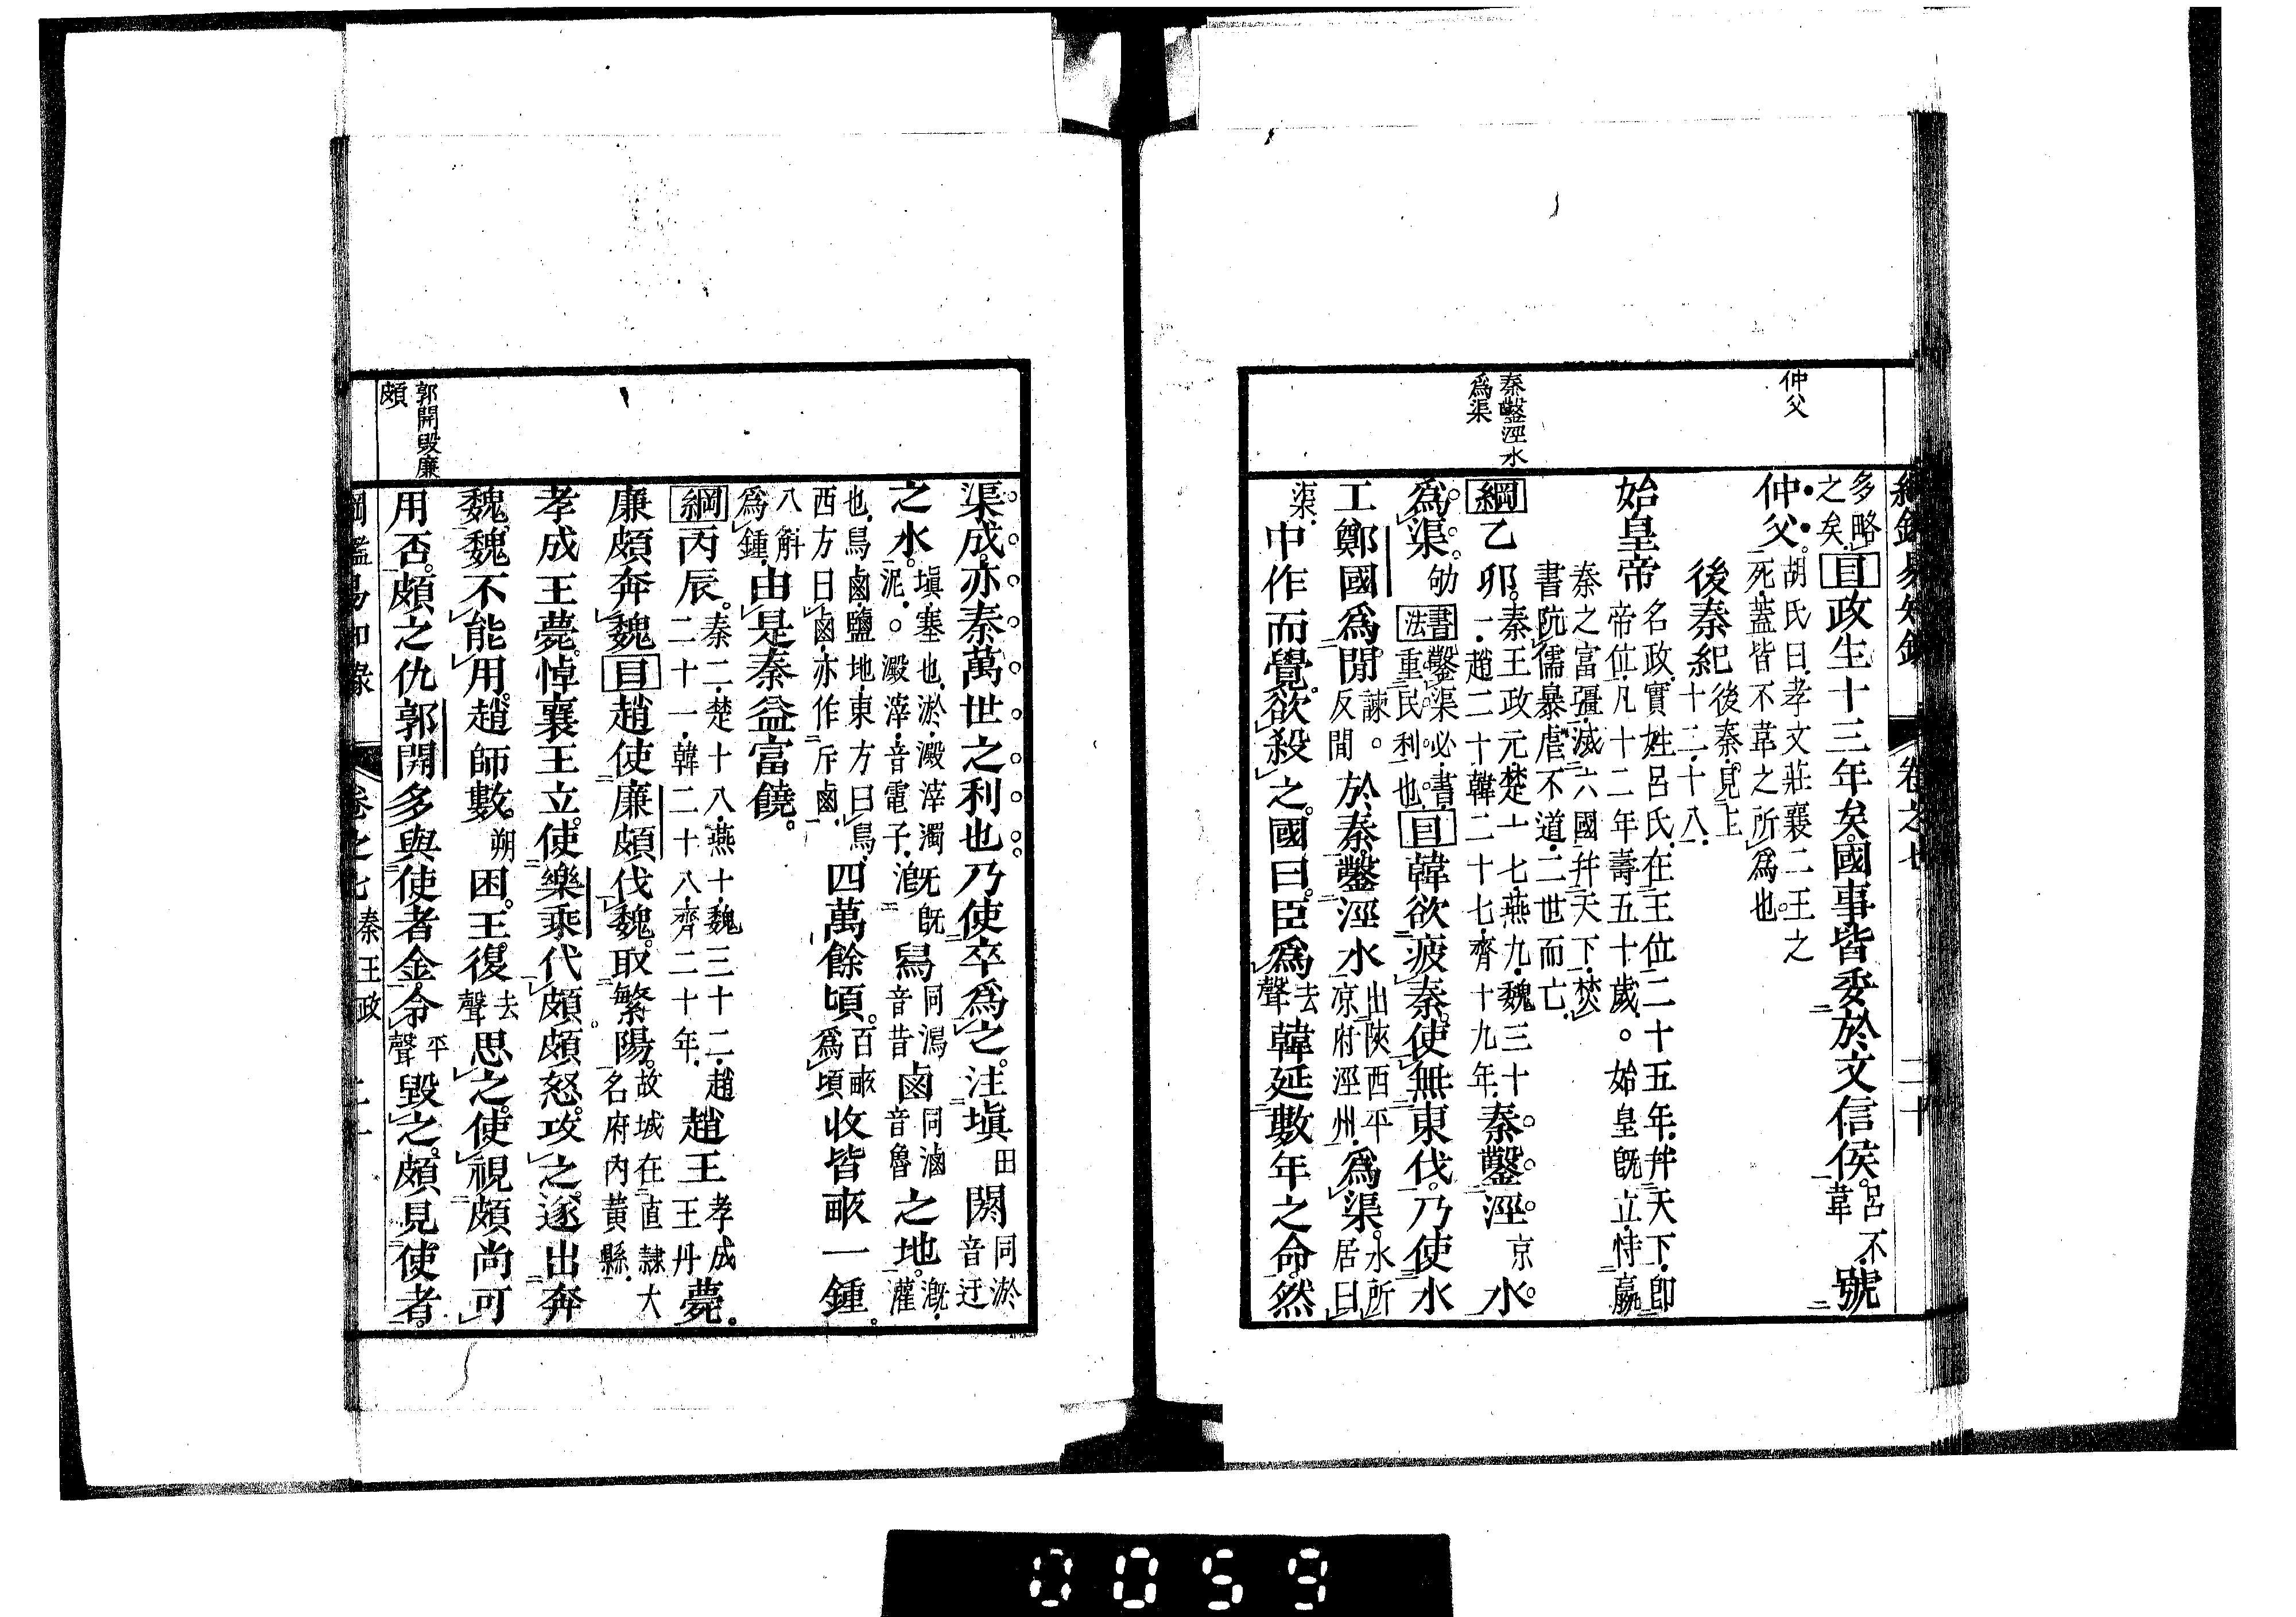 綱鑑易知錄　卷之七　二十
仲父
秦鑿涇水
爲渠
多略之矣。目政生十三年矣。國事皆委於文信侯。呂不韋號
仲父。胡氏曰、孝文莊襄二王之死、蓋皆不韋之所爲也。
後秦紀後秦、見上十二、十八、
始皇帝名政、實姓呂氏、在王位二十五年、幷天下、卽帝位、凡十二年、壽五十歲。始皇旣立、恃嬴
秦之富彊、滅六國、幷天下、焚書阬儒、暴虐不道、二世而亡、
綱乙卯。秦王政元、楚十七、燕九、魏三十一、趙二十、韓二十七、齊十九年、秦鑿涇京水。
爲渠。劬書法鑿渠必書、重民利也。目韓欲疲秦。使無東伐。乃使水
工鄭國爲閒。諫。反間於秦。鑿涇水出陝西平凉府涇州、爲渠。水所居曰
渠、中作而覺。欲殺之。國曰。臣爲去聲韓延數年之命。然
渠成。亦秦萬世之利也。乃使卒爲之。注塡田閼同淤音迂
之水。塡、塞也、淤、澱滓濁泥、。澱滓、音電子、漑旣灌舄同潟音昔鹵同滷音魯之地。漑、灌
也、舄鹵、鹽地、東方曰舄、西方曰鹵、鹵亦作斥鹵、四萬餘頃。百畞爲頃收皆畞一鍾。
八斛爲鍾、由是秦益富饒。
綱丙辰。秦二、楚十八、燕十、魏三十二、趙二十一、韓二十八、齊二十年、趙王孝成王丹薨。
廉頗奔魏目趙使廉頗伐魏。取繁陽。故城在直隷大名府內黃縣、
孝成王薨。悼襄王立。使樂乘代頗。頗怒。攻之。遂出奔
魏。魏不能用。趙師數朔困。王復去聲思之。使視頗尚可
用否。頗之仇郭開多與使者金。令平聲毀之。頗見使者。
郭開毀廉
頗
綱鑑易知錄　卷之七　秦王政　二十一